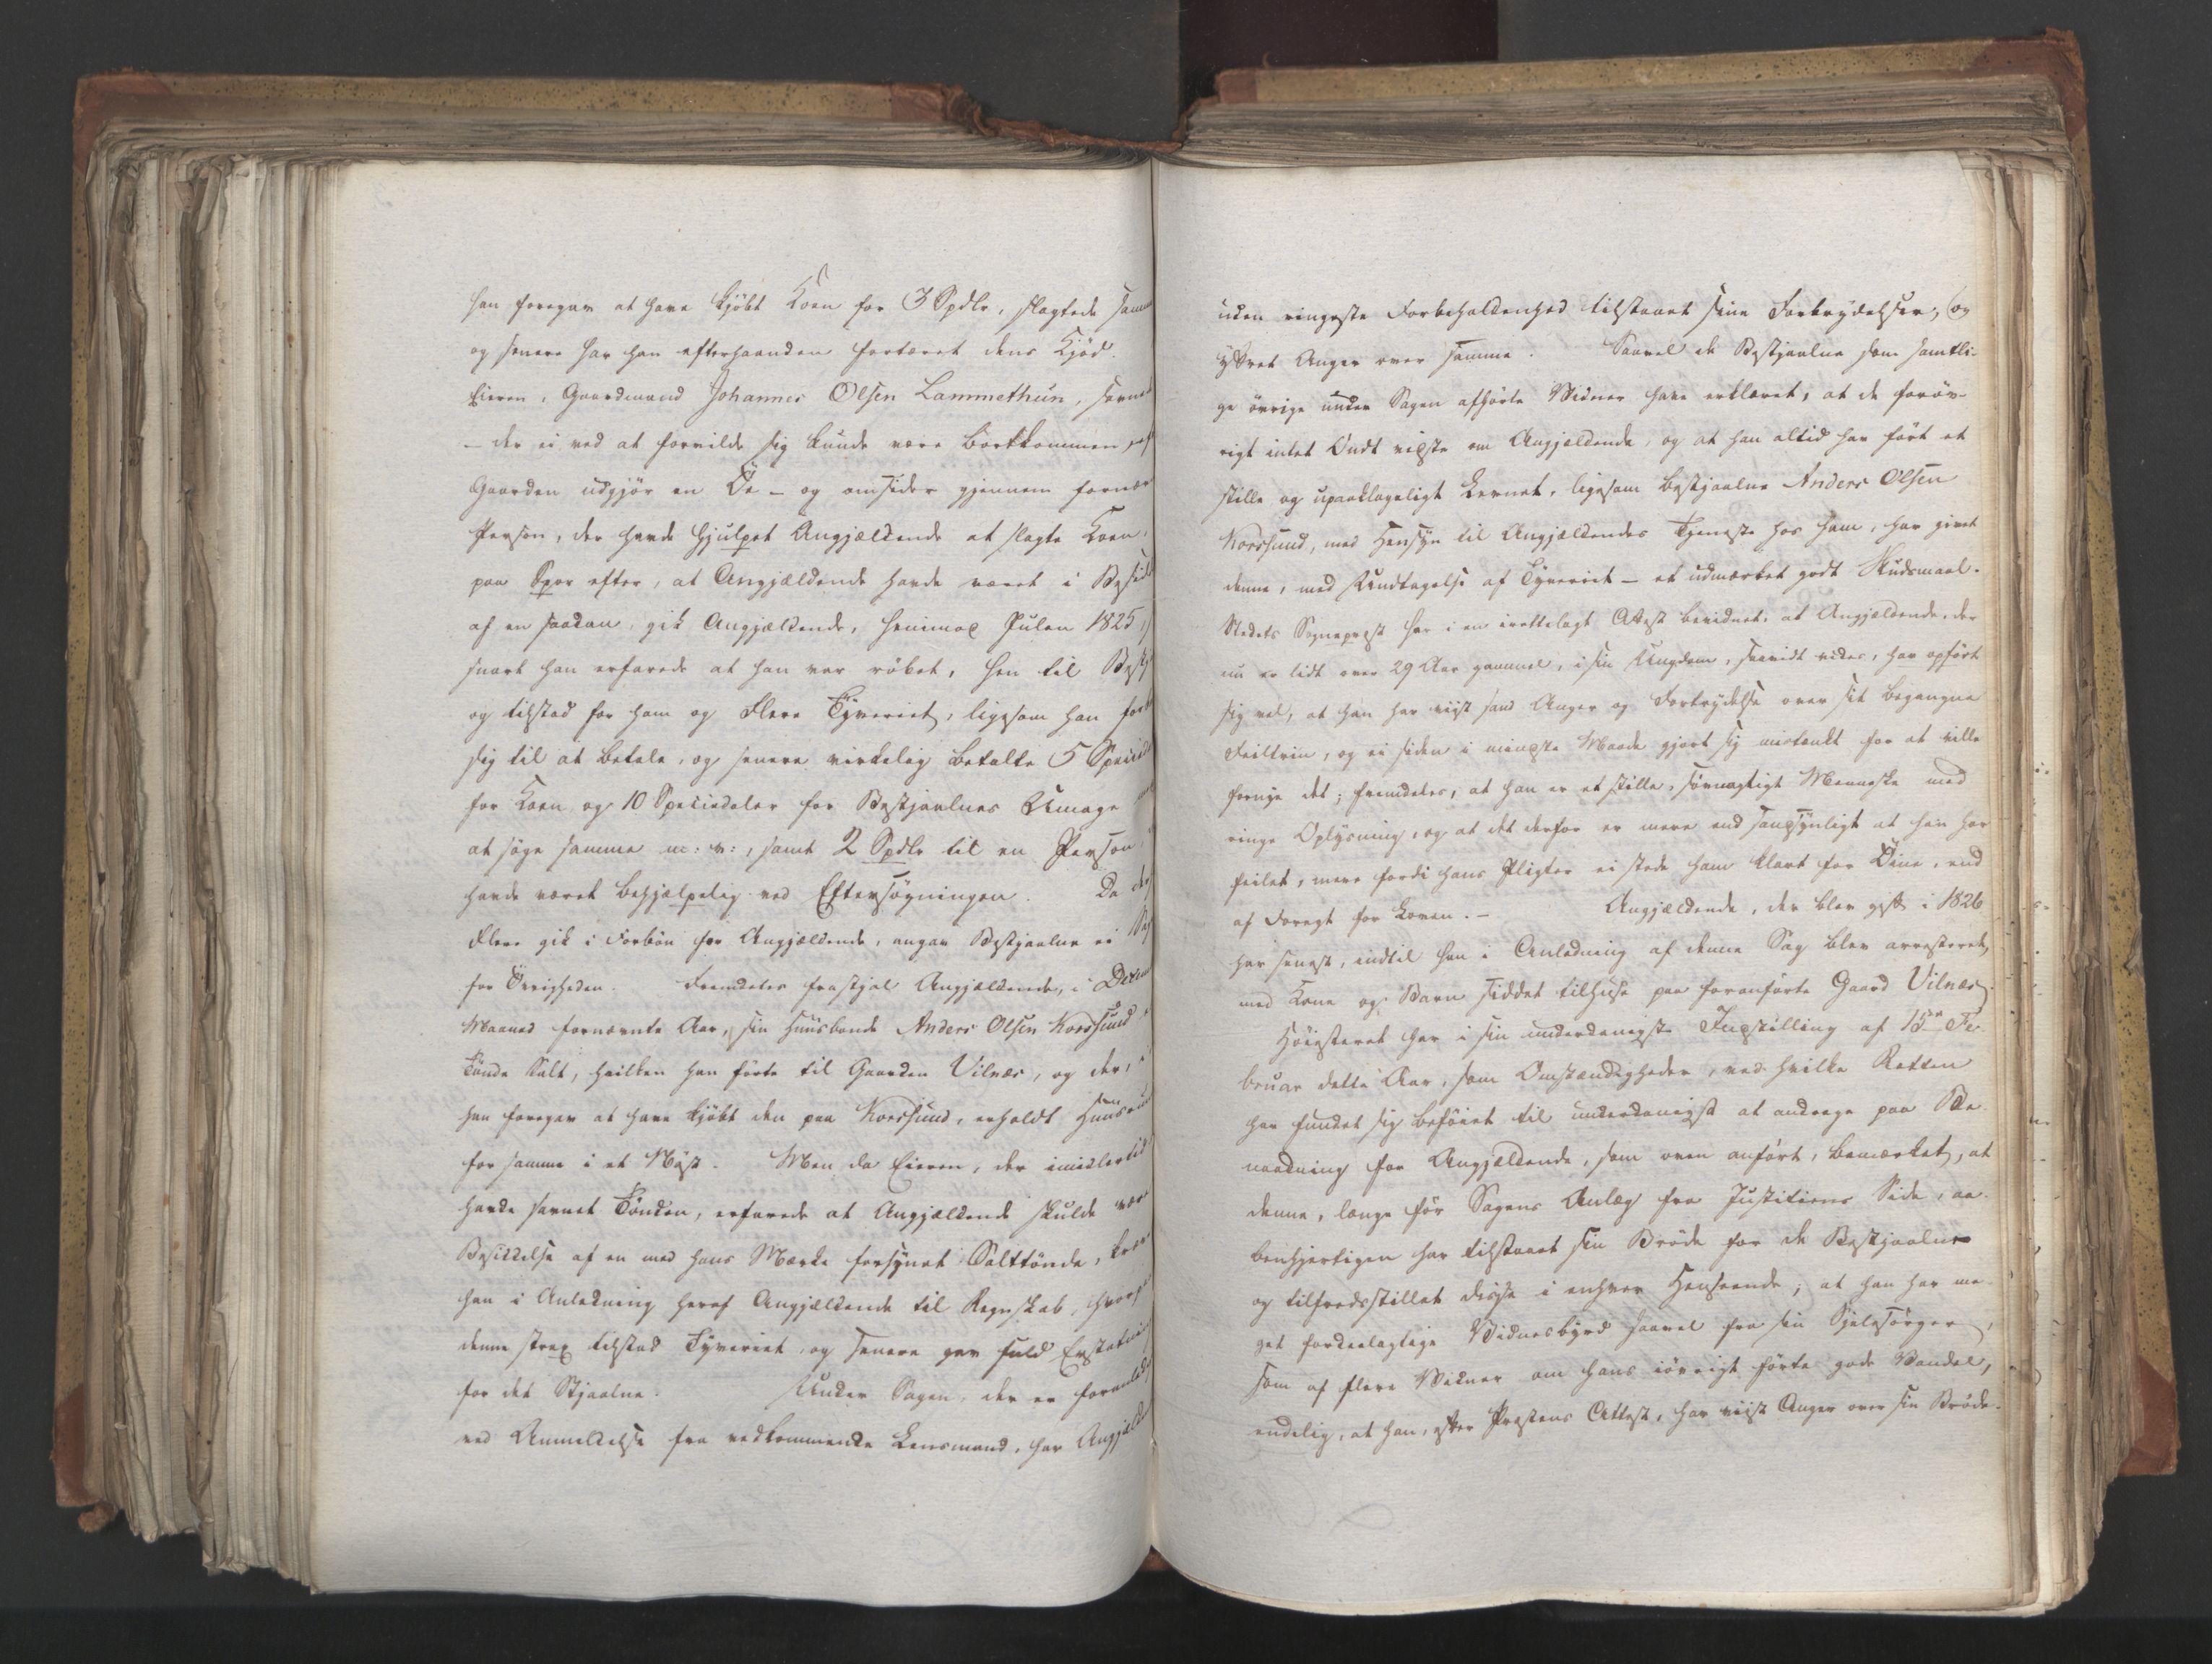 han foregav at have kjöbt Koen for 3 Spdlr, slagtede samme
og senere har han efterhaanden fortæret dens Kjöd.
Eieren, Gaardmand Johannes Olsen Lammethun, savnede
– der ei ved at forvilde sig kunde være bortkommen,
Gaarden udgjör en Öe – og omsider gjennem fornævnte
Person, der havde hjulpet Angjældende at slagte Koen,
paa Spor efter, at Angjældende havde været i Besiddelse
af en saadan, gik Angjældende, henimod Julen 1825,
snart han erfarede at han var röbet, hen til
og tilstod for ham og Flere Tyveriet, ligesom han
sig til at betale, og senere virkelig betalte 5 Specied
for Koen og 10 Speciedaler for Bestjaalnes Umage
at söge samme m: v:, samt 2 Spdlr til en Person
havde været behjælpelig ved Eftersögningen. Da
Flere gik i Forbön for Angjældende, angav Bestjaalne ei
for Övrigheden. Fremdeles frastjal Angjældende, i Decem
Maaned fornævnte Aar, sin Huusbonde Anders Olsen Korssund
Tönde Salt, hvilken han förte til Gaarden Vilnæs, og der,
han foregav at have kjöbt den paa Korssund, erholdt Huusrum
for samme i et Nöst. Men da Eieren, der imidlertid
havde savnet Tönden, erfarede at Angjældende skulde være
Besiddelse af en med hans Mærke forsynet Salttönde,
han i Anledning heraf Angjældende til Regnskab, hvorpaa
denne strax tilstod Tyveriet, og senere gav fuld Erstatning
for det Stjaalne. Under Sagen, der er foranledig
ved Anmeldelse fra vedkommende Lensmand, har Angjælde
uden ringeste Forbeholdenhed tilstaaet sine Forbrydelser, og
yttret Anger over samme. Saavel de Bestjaalne som samtli-
ge övrige under Sagen afhörte Vidner have erklæret, at de foröv-
rigt intet Ondt vidste om Angjældende, og at han altid har fört et
stille og upaaklageligt Levnet, ligesom Bestjaalne Anders Olsen
Korssund, med Hensyn til Angjældendes Tjeneste hos ham, har givet
denne, med Undtagelse af Tyveriet – et udmærket godt Skudsmaal.
Stedets Sognepræst har i en irettelagt Attest bevidnet, at Angjældende, der
nu er lidt over 29 Aar gammel, i sin Ungdom, saavidt vides, har opfört
sig vel, at han har viist sand Anger og Fortrydelse over sit begangne
Feiltrin, og ei siden i mindste Maade gjort sig mistænkt for at ville
fornye det; fremdeles, at han er et stille, sövnagtigt Menneske med
ringe Oplysning, og at det derfor er mere end sandsynligt at han har
feilet, mere fordi hans Pligter ei stode ham klart for Öine, end
af Foragt for Loven. – Angjældende, der blev gift i 1826
har senest, indtil han i Anledning af denne Sag blev arresteret,
med Kone og Barn siddet tilhuse paa foranförte Gaard Vilnæs.
Höiesteret har i sin underdanigste Indstilling af 15de Fe-
bruar dette Aar, som Omstændigheder, ved hvilke Retten
har fundet sig beföiet til underdanigst at andrage paa Be-
naadning for Angjældende, som oven anfört, bemærket, at
denne, længe för Sagens Anlæg fra Justitiens Side, aa-
benhjertigen har tilstaaet sin Bröde for de Bestjaalne
og tilfredsstillet disse i enhver Henseende; at han har me-
get fordeelagtige Vidnesbyrd saavel fra sin Sjælesörger,
som af flere Vidner om hans iövrigt förte gode Vandel,
endelig, at han, efter Præstens Attest, har viist Anger over sin Bröde.